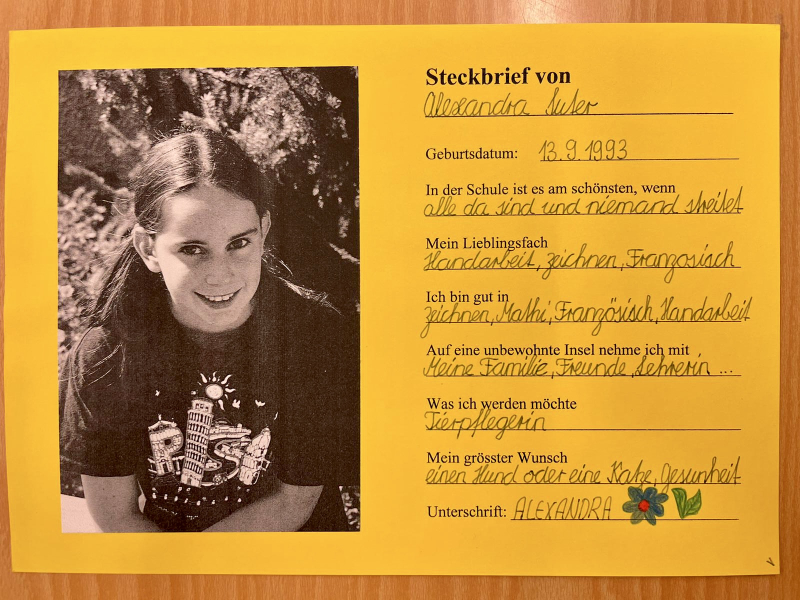 Steckbrief von
Alexandra Suter
Geburtsdatum: 13.9.1993
In der Schule ist es am schönsten, wenn
alle da sind und niemand streitet
Mein Lieblingsfach
Handarbeit, zeichnen, Französisch
Ich bin gut in
zeichnen, Mathi, Französisch, Handarbeit
Auf eine unbewohnte Insel nehme ich mit
Meine Familie, Freunde, Lehrerin ...
Was ich werden möchte
Tierpflegerin
Mein grösster Wunsch
einen Hund oder eine Katze, Gesunheit
Unterschrift: ALEXANDRA
PISA
1